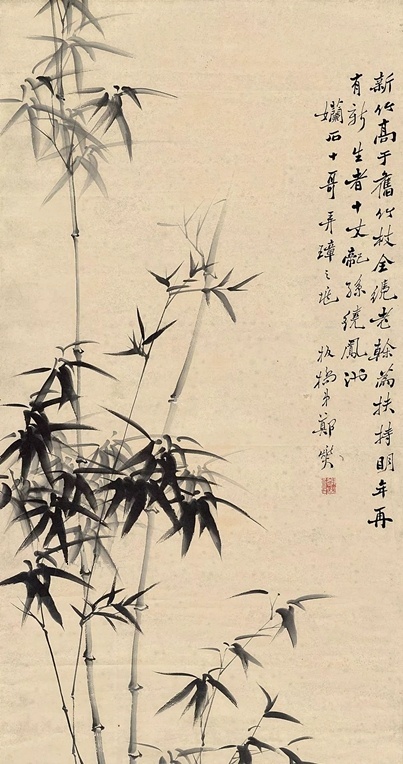 新竹高于舊竹枝全憑老幹為扶持明年再
有新生者十丈龍孫繞鳳池
孏石十哥弄璋之兆 板橋弟鄭燮